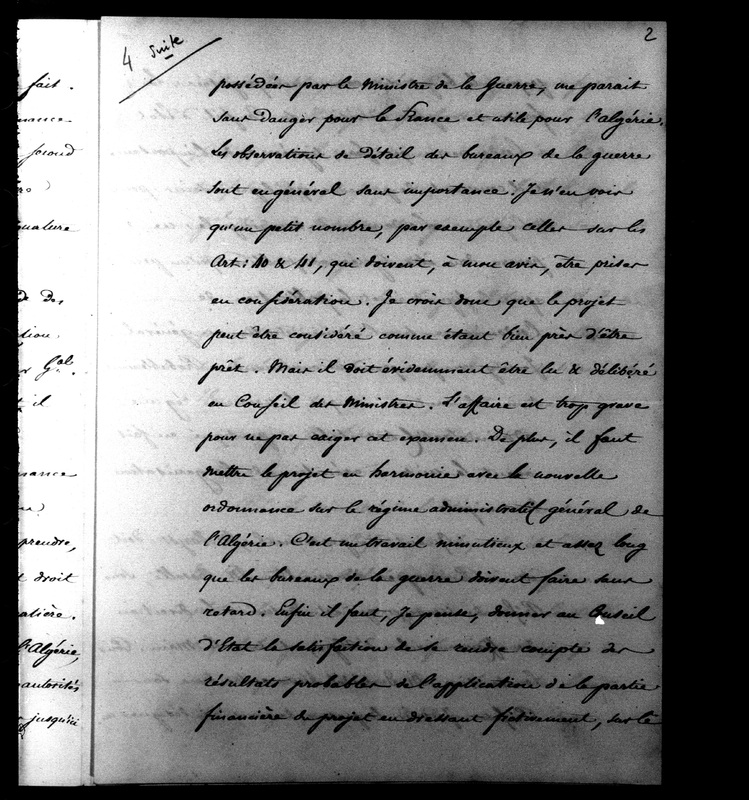 fait.
nance
second
nature
de des
tion
Gal.
il
nance
prendre,
t droit
atière.
l'Algérie,
autorités
jusqu'ici
4 suite
2
possédées par le Ministre de la Guerre, me parait
sans danger pour la France et utile pour l'algérie.
Les observations de détail des bureaux de la guerre
sont en général sans importance. Je n'en vois
qu'un petit nombre, par exemple celles sur les
Art: 40 & 41, qui doivent, à mon avis, être prises
en considération. Je crois donc que le projet
peut être considéré comme étant bien près d'être
prêt. Mais il doit évidemment être lu & délibéré
en Conseil des Ministres. L'affaire est trop grave
pour ne pas exiger cet examen. De plus, il faut
mettre le projet en harmonie avec la nouvelle
ordonnance sur le régime administratif général de
l'Algérie. C'est un travail minutieux et assez long
que les bureaux de la guerre doivent faire sans
retard. Enfin il faut, Je pense, donner au Conseil
d'Etat la satisfaction de se rendre compte des
résultats probables de l'application de la partie
financière du projet en dressant fictivement, sur le